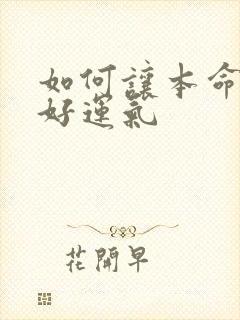 如何讓本命
好運氣
花開早